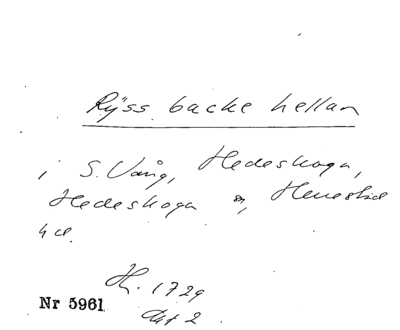 Rÿss backe hellan
i S. Vång, Hedeskoga,
Hedeskoga sn, Herrestad
hd.
Hh. 1729
akt 2
Nr 5961